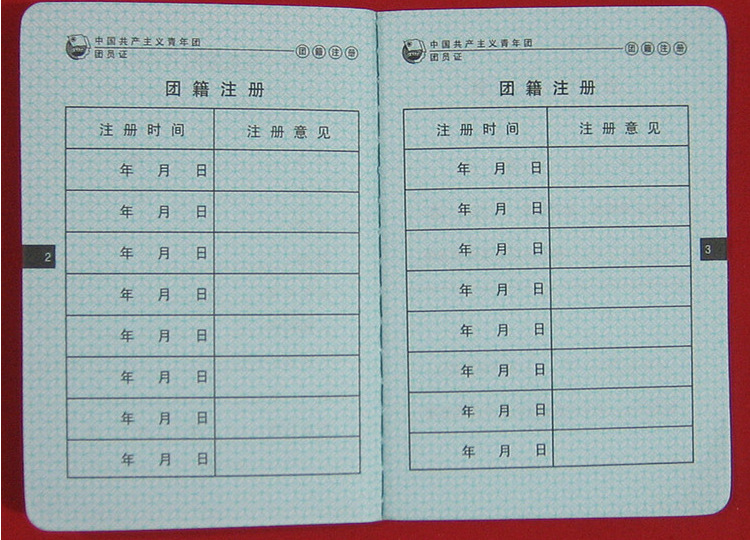 中国共产主义青年团
团员证
团籍注册
团籍注册
注册时间 注册意见
年 月 日
年 月 日
年 月 日
年 月 日
年 月 日
年 月 日
年 月 日
年 月 日
2
中国共产主义青年团
团员证
团籍注册
团籍注册
注册时间 注册意见
年 月 日
年 月 日
年 月 日
年 月 日
年 月 日
年 月 日
年 月 日
年 月 日
3